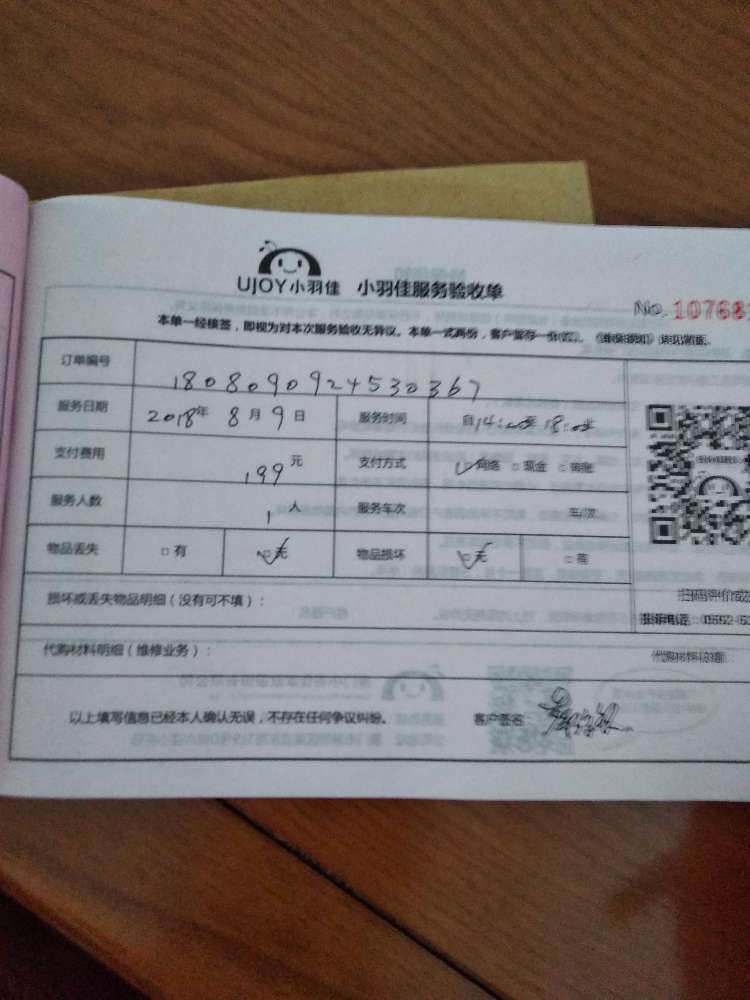 UJOY小羽佳 小羽佳服务验收单
No. 10768
本单一经核签，即视为对本次服务验收无异议。本单一式两份，客户留存一份
订单编号 180809092453 0367
服务日期 2018年 8月 9日 服务时间 自14: 至18:
支付费用 199元 支付方式 网络 □现金 □
服务人数 1人 服务车次 车/次
物品丢失 □有 □无 物品损坏 □无 □有
损坏或丢失物品明细（没有可不填）：
扫码评价或
投诉电话：0592-
代购材料明细（维修业务）：
以上填写信息已经本人确认无误，不存在任何争议纠纷。 客户签名：